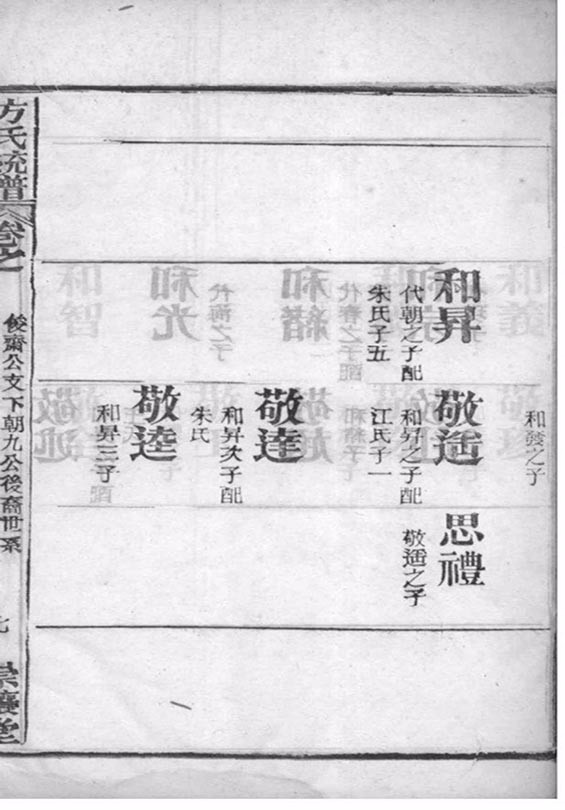 和發之子
和昇
代朝之子配
朱氏子五
敬适
和昇之子配
江氏子一
思禮
敬适之子
敬達
和昇次子配
朱氏
敬逵
和昇三子
方氏統譜
卷之
俊齋公支下朝九公後裔世系
七
崇讓堂